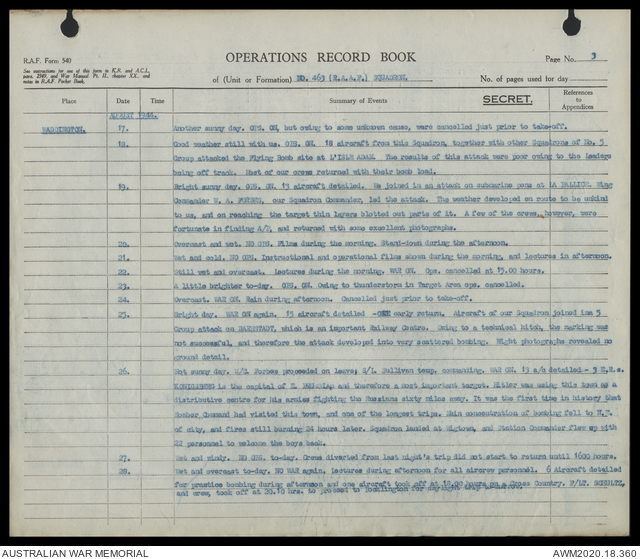 R.A.F. Form 540
See instructions for use of this form in K.R. and A.C.I.,
para. 2349, and War Manual, Pt. II., chapter XX., and
notes in R.A.F. Pocket Book.
OPERATIONS RECORD BOOK
Page No. 3
of (Unit or Formation) NO. 463 (R.A.A.F.) SQUADRON.
No. of pages used for day
Place Date Time Summary of Events SECRET. References to Appendices
AUGUST 1944.
WADDINGTON. 17. Another sunny day. OPS. ON, but owing to some unknown cause, were cancelled just prior to take-off.
18. Good weather still with us. OPS. ON. 18 aircraft from this Squadron, together with other Squadrons of No. 5
Group attacked the Flying Bomb site at L'ISLE ADAM. The results of this attack were poor owing to the leaders
being off track. Most of our crews returned with their bomb load.
19. Bright sunny day. OPS. ON. 13 aircraft detailed. We joined in an attack on submarine pens at LA PALLICE. Wing
Commander W. A. FORBES, our Squadron Commander, led the attack. The weather developed en route to be unkind
to us, and on reaching the target thin layers blotted out parts of it. A few of the crews, however, were
fortunate in finding A/P, and returned with some excellent photographs.
20. Overcast and wet. NO OPS. Films during the morning. Stand-down during the afternoon.
21. Wet and cold. NO OPS. Instructional and operational films shown during the morning, and lectures in afternoon.
22. Still wet and overcast. Lectures during the morning. WAR ON. Ops. cancelled at 15.00 hours.
23. A little brighter to-day. OPS. ON. Owing to thunderstorm in Target Area ops. cancelled.
24. Overcast. WAR ON. Rain during afternoon. Cancelled just prior to take-off.
25. Bright day. WAR ON again. 15 aircraft detailed - ONE early return. Aircraft of our Squadron joined in a 5
Group attack on DARMSTADT, which is an important Railway Centre. Owing to a technical hitch, the marking was
not successful, and therefore the attack developed into very scattered bombing. Night photographs revealed no
ground detail.
26. Hot sunny day. W/C. Forbes proceeded on leave; S/L. Sullivan temp. commanding. WAR ON. 13 a/c detailed - 3 E.R.s.
KONIGSBERG is the capital of E. PRUSSIA and therefore a most important target. Hitler was using this town as a
distributive centre for his armies fighting the Russians sixty miles away. It was the first time in history that
Bomber Command had visited this town, and one of the longest trips. Main concentration of bombing fell to N.E.
of city, and fires still burning 24 hours later. Squadron landed at Wigtown, and Station Commander flew up with
22 personnel to welcome the boys back.
27. Wet and windy. NO OPS. to-day. Crews diverted from last night's trip did not start to return until 1600 hours.
28. Wet and overcast to-day. NO WAR again. Lectures during afternoon for all aircrew personnel. 6 Aircraft detailed
for practice bombing during afternoon and one aircraft took off at 18.00 hours on a Cross Country. F/LT. SCHULTZ,
and crew, took off at 20.10 hrs. to proceed to Pocklington for
AUSTRALIAN WAR MEMORIAL
AWM2020.18.360